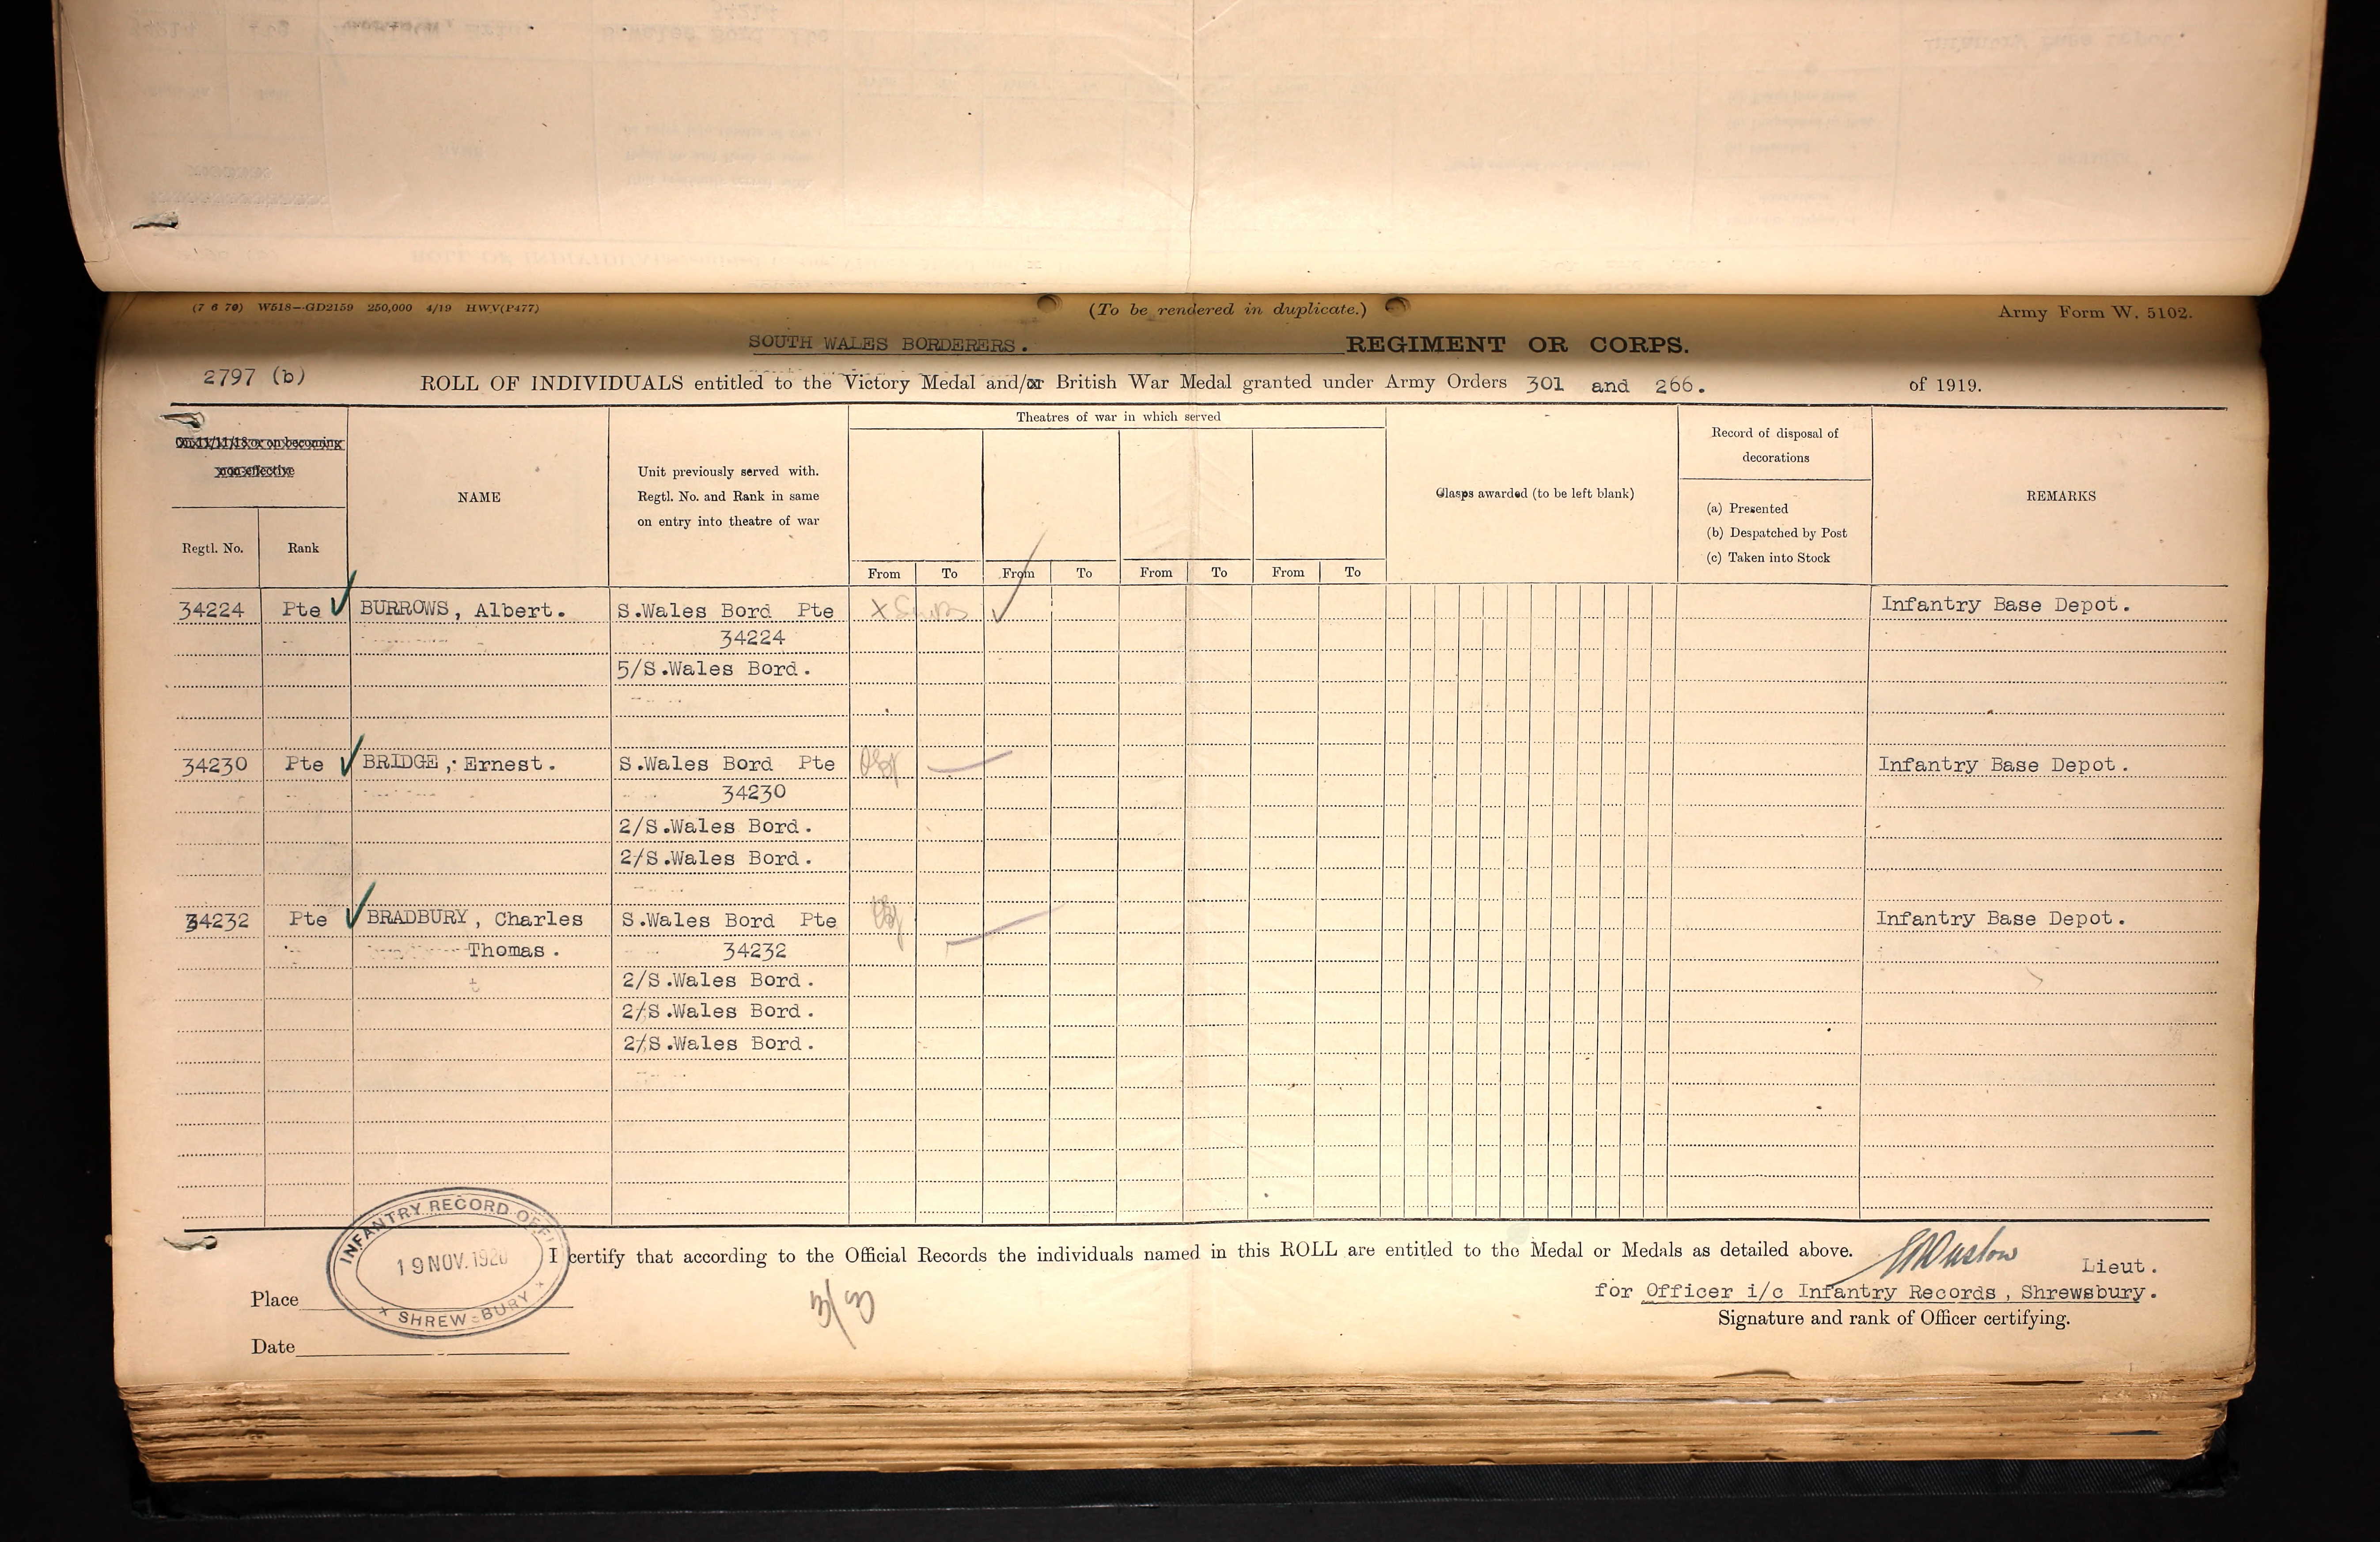 (7 6 70) W518—GD2159 250,000 4/19 HWV(P477)
(To be rendered in duplicate.)
Army Form W. 5102.
SOUTH WALES BORDERERS. REGIMENT OR CORPS.
2797 (b)
ROLL OF INDIVIDUALS entitled to the Victory Medal and/or British War Medal granted under Army Orders 301 and 266. of 1919.
On 11/11/18 or on becoming
non-effective
Regtl. No.
Rank
NAME
Unit previously served with.
Regtl. No. and Rank in same
on entry into theatre of war
Theatres of war in which served
From To From To From To From To
Clasps awarded (to be left blank)
Record of disposal of
decorations
(a) Presented
(b) Despatched by Post
(c) Taken into Stock
REMARKS
34224 Pte BURROWS, Albert. S.Wales Bord Pte Infantry Base Depot.
34224
5/S.Wales Bord.
34230 Pte BRIDGE, Ernest. S.Wales Bord Pte Infantry Base Depot.
34230
2/S.Wales Bord.
2/S.Wales Bord.
34232 Pte BRADBURY, Charles S.Wales Bord Pte Infantry Base Depot.
Thomas. 34232
2/S.Wales Bord.
2/S.Wales Bord.
2/S.Wales Bord.
INFANTRY RECORD OFFI
19 NOV. 1920
SHREWSBURY
I certify that according to the Official Records the individuals named in this ROLL are entitled to the Medal or Medals as detailed above.
Lieut.
Place
for Officer i/c Infantry Records, Shrewsbury.
Signature and rank of Officer certifying.
Date